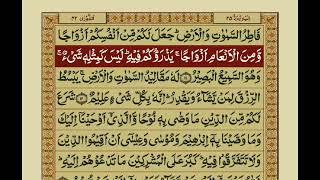 فَاطِرُ السَّمٰوٰتِ وَالْاَرْضِ ؕ جَعَلَ لَكُمْ مِّنْ اَنْفُسِكُمْ اَزْوَاجًا
وَّمِنَ الْاَنْعَامِ اَزْوَاجًا ۚ يَذْرَؤُكُمْ فِيْهِ ؕ لَيْسَ كَمِثْلِهٖ شَیْءٌ ۚ
وَهُوَ السَّمِيْعُ الْبَصِيْرُ لَهٗ مَقَالِيْدُ السَّمٰوٰتِ وَالْاَرْضِ ۚ يَبْسُطُ
الرِّزْقَ لِمَنْ يَّشَآءُ وَيَقْدِرُ ؕ اِنَّهٗ بِكُلِّ شَیْءٍ عَلِيْمٌ شَرَعَ
لَكُمْ مِّنَ الدِّيْنِ مَا وَصّٰى بِهٖ نُوْحًا وَّالَّذِیْۤ اَوْحَيْنَاۤ اِلَيْكَ
وَمَا وَصَّيْنَا بِهٖۤ اِبْرٰهِيْمَ وَمُوْسٰى وَعِيْسٰۤى اَنْ اَقِيْمُوا الدِّيْنَ
وَلَا تَتَفَرَّقُوْا فِيْهِ ؕ كَبُرَ عَلَى الْمُشْرِكِيْنَ مَا تَدْعُوْهُمْ اِلَيْهِ ؕ